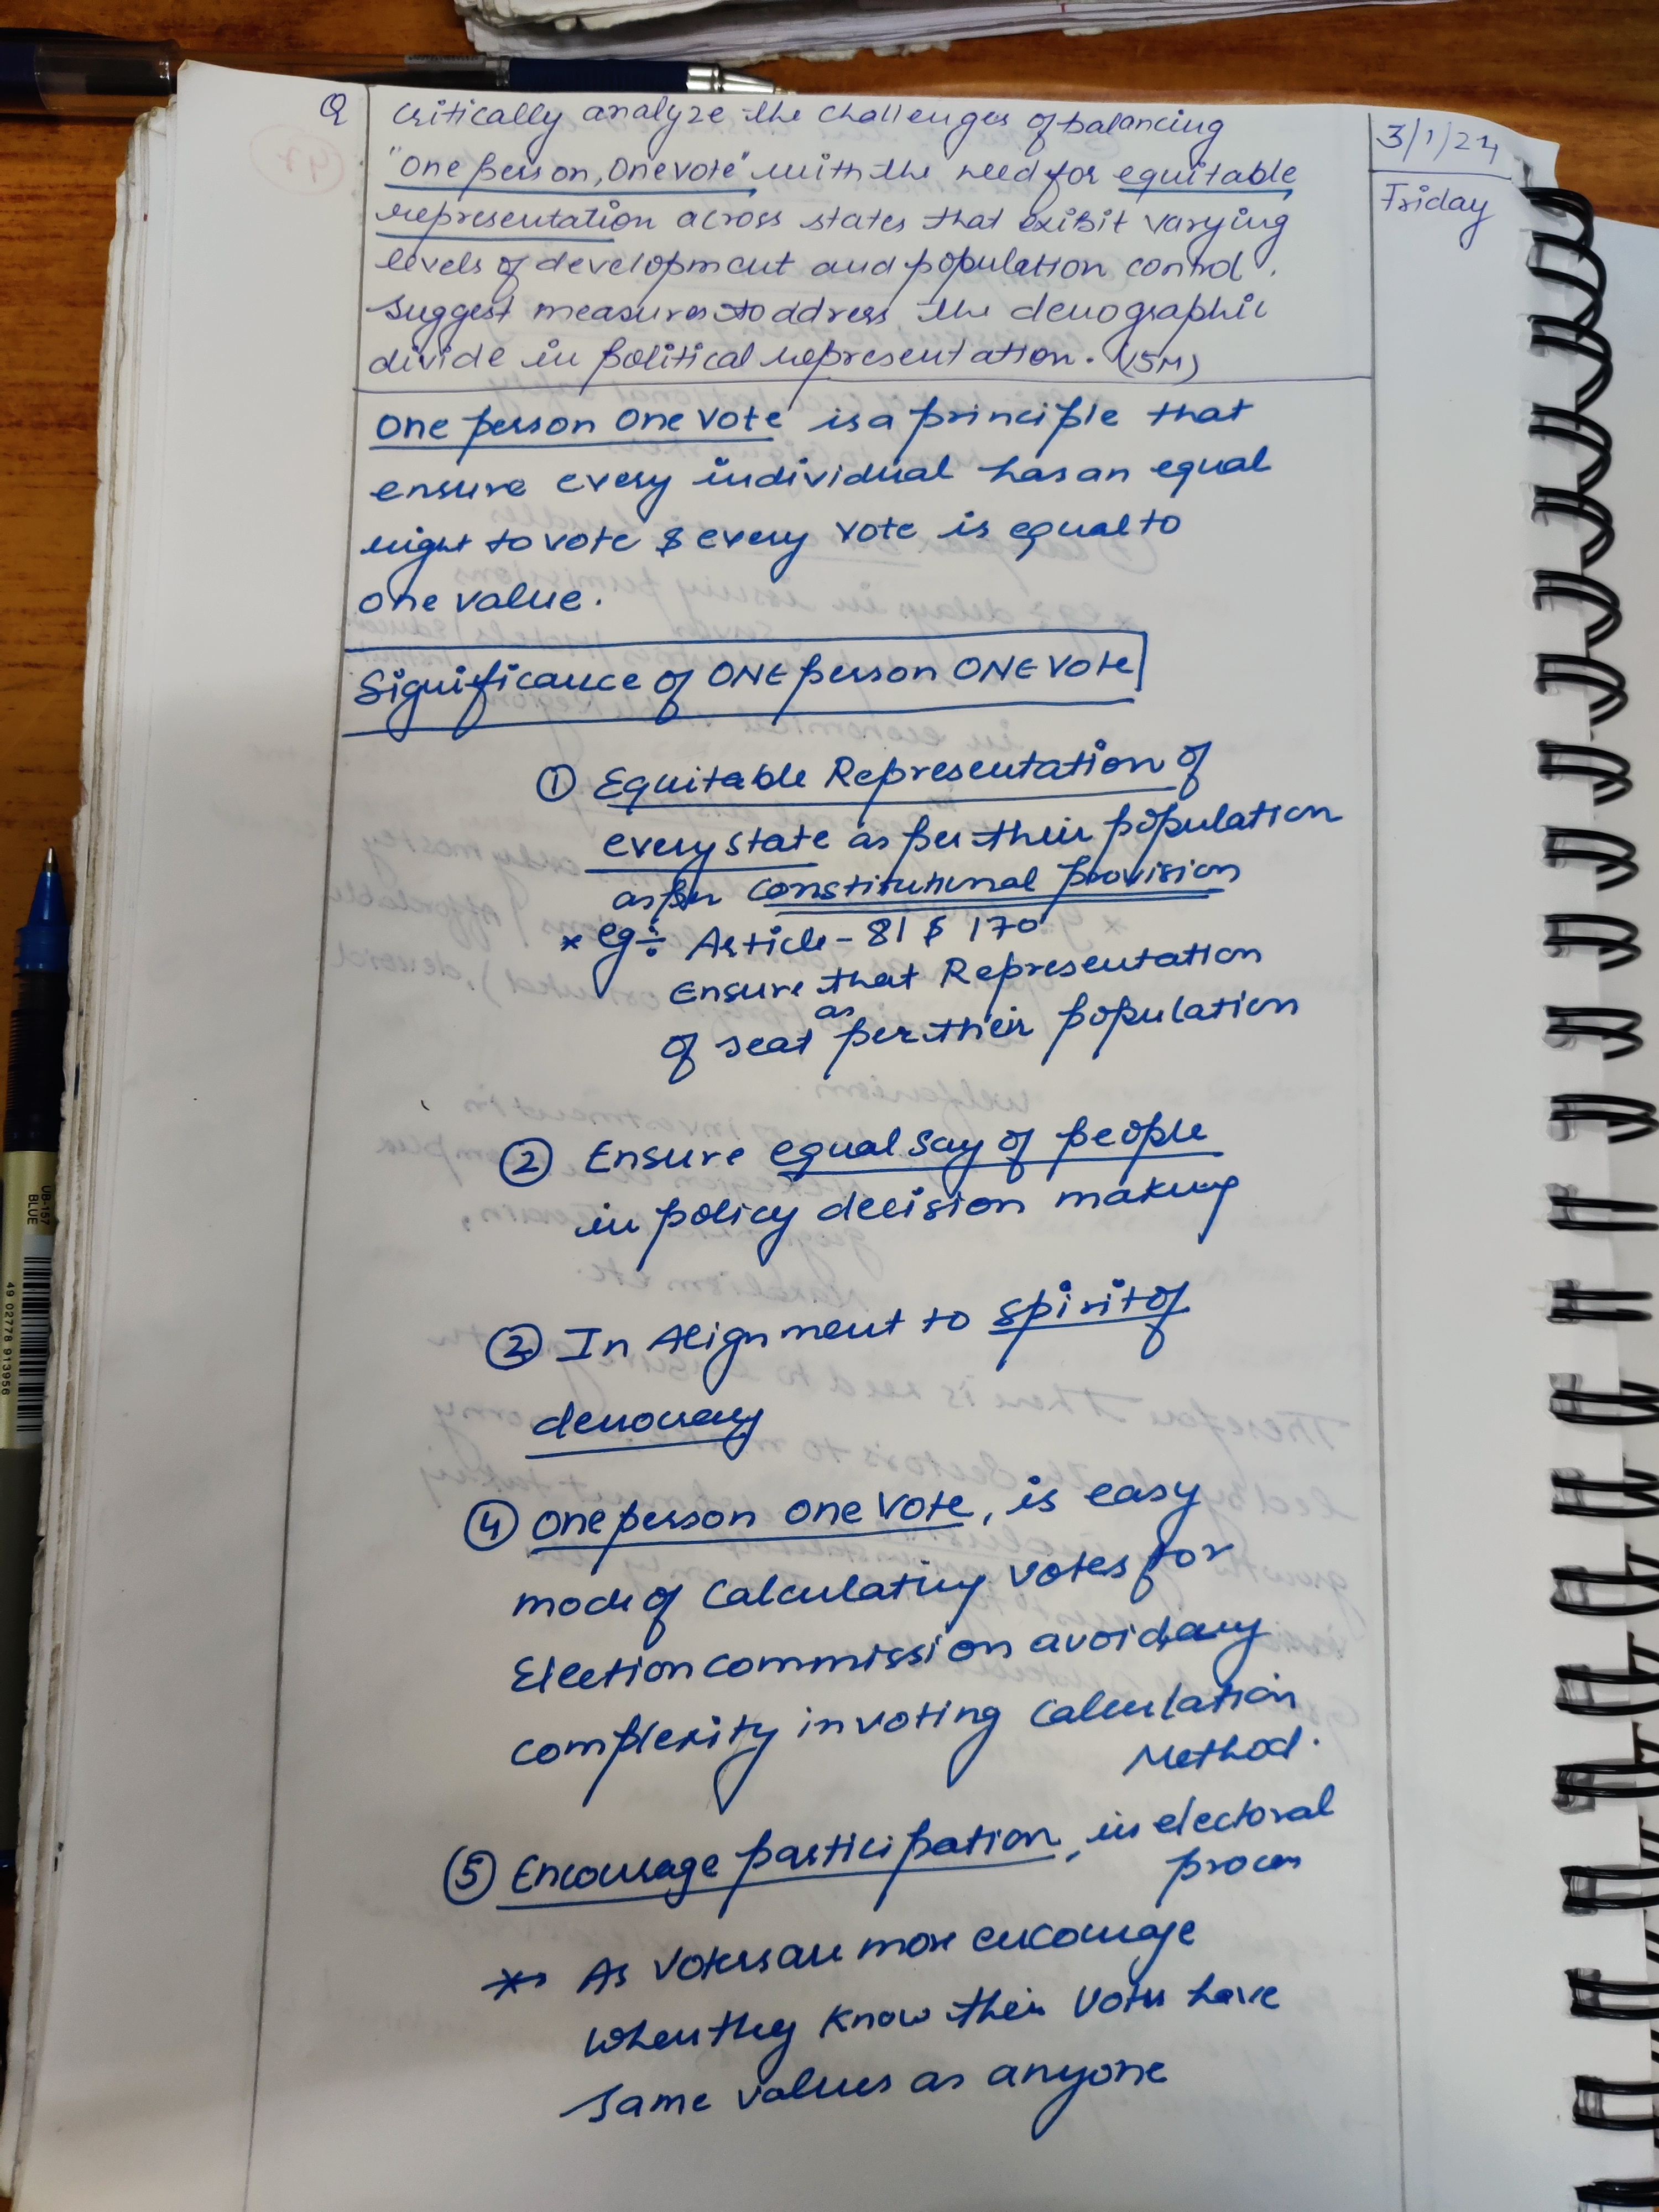 Q
Critically analyze the challenges of balancing
"One person, One vote" with the need for equitable
representation across states that exibit varying
levels of development and population control.
Suggest measures to address the demographic
divide in political representation. (15M)
3/1/24
Friday
One person One vote is a principle that
ensure every individual has an equal
right to vote & every vote is equal to
one value.
Significance of ONE person ONE VOTE
① Equitable Representation of
every state as per their population
as per constitutional provision
* eg÷ Article - 81 & 170
Ensure that Representation
of seat as per their population
② Ensure equal say of people
in policy decision making
③ In Alignment to spirit of
democracy
④ One person one vote, is easy
mode of calculating votes for
Election commission avoid any
complexity in voting calculation
Method.
⑤ Encourage participation, in electoral
process
* As voters are more encourage
when they know their votes have
same values as anyone
UB-157
BLUE
49 02778 913956